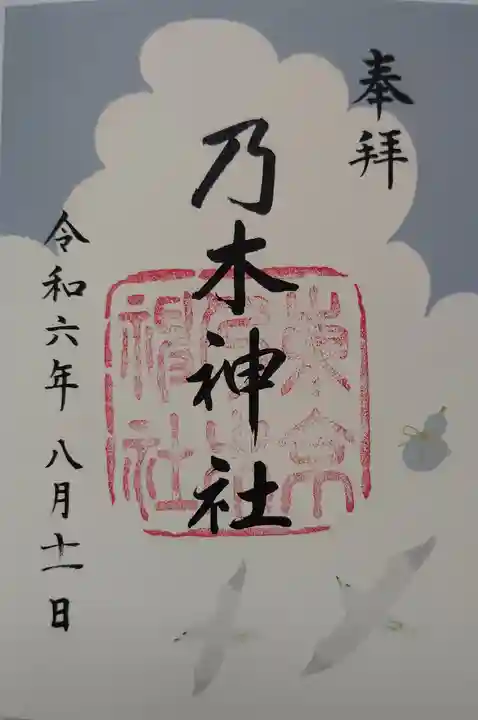 奉拝
乃木神社
東京乃木神社
令和六年八月十一日